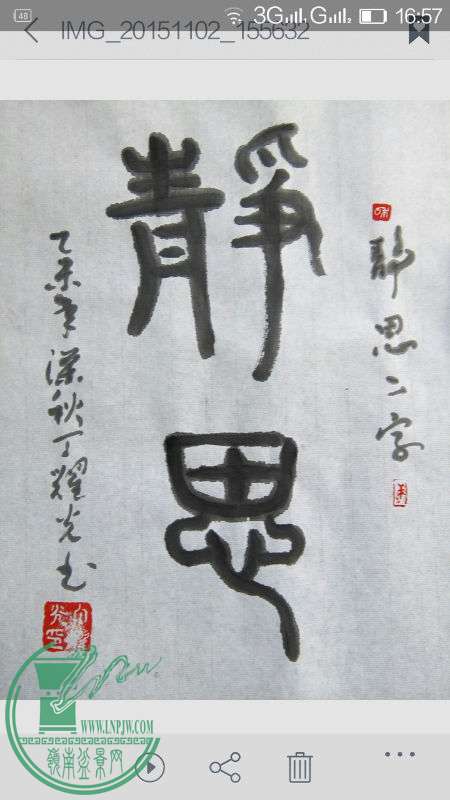 48 3G G 16:57
IMG_20151102_155632
靜思二字
靜思
乙未年深秋丁耀光书
WWW.LNPJW.COM
嶺南盆景网